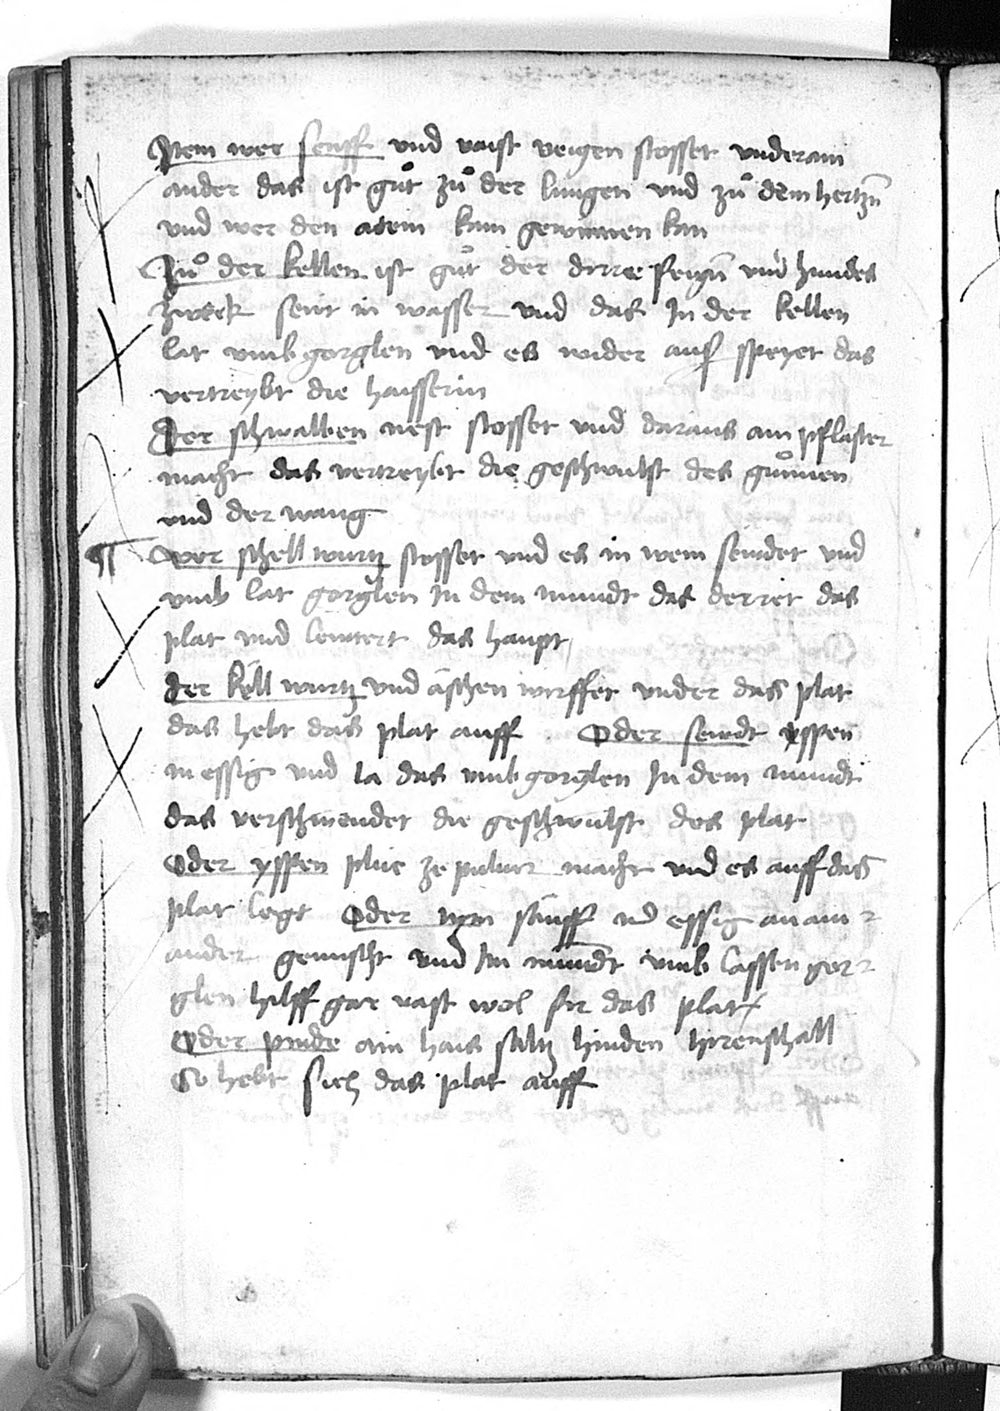 Item wer senff und vaist veigen stosset underain
ander das ist gůt zů der lungen und zů dem hertzn̄
und wer den atem kam gewinnen kan
Zů der kellen ist gůt der dirre feign̄ und hundes
zweck seut in wasser und das In der kellen
lat umb gorglen und es wider auß speyet das
vertreybt die haisserin
Der schwalben nest stosset und daraus ain pflaster
macht das vertreybt die geschwulst des gůmen
und der wang
¶ Wer schell wurtz stosset und es in wein seudet und
umb lat gorglen In dem mundt das derret das
plat und leutert das haupt
der kell wurtz und äschen wirffet under das plat
das hebt das plat auff Oder seudt yspen
in essig und la das umb gorglen In dem mundt
das verschwendet die geschwulst des plat
Oder yspen plüe ze pulver macht und es auff das
plat legt Oder nym senff und essig an ain
ander gemischt und Im mundt umb lassen gor
glen hilff gar vast wol für das plat
Oder pinde ain hais saltz hinden hirenschall
So hebt sich das plat auff